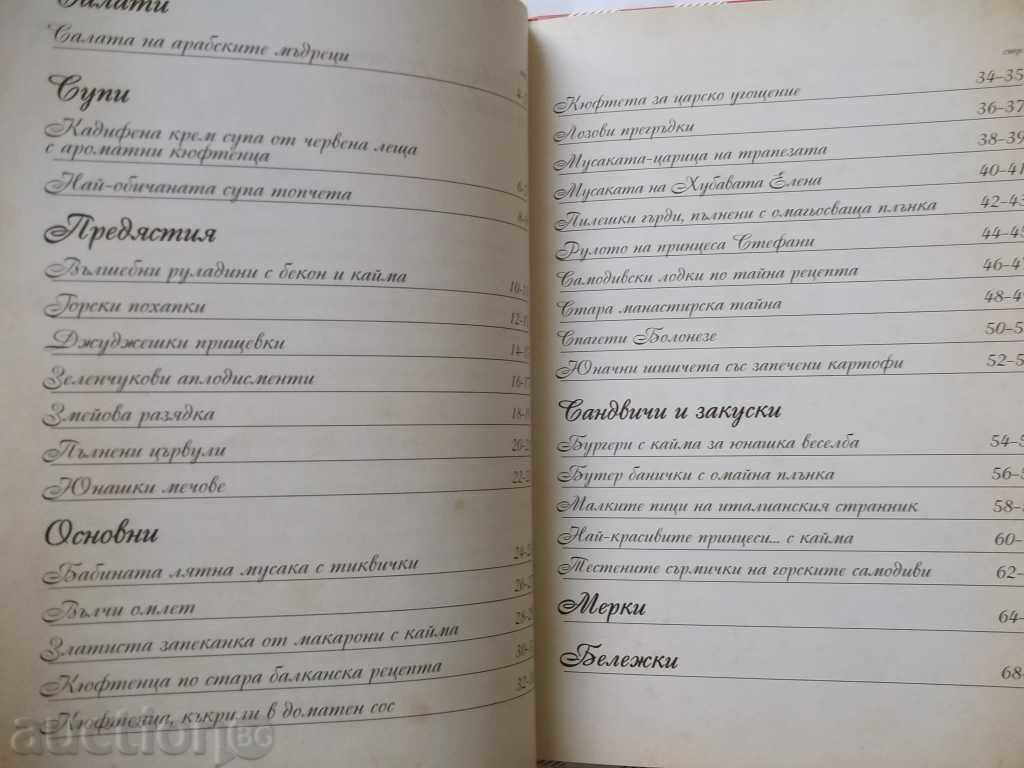 Салати
Салата на арабските мъдреци 4-
Супи
Кадифена крем супа от червена леща
с ароматни кюфтенца 6-
Най-обичаната супа топчета 8-
Предястия
Вълшебни руладини с бекон и кайма 10-1
Горски похапки 12-1
Джуджешки прищевки 14-1
Зеленчукови аплодисменти 16-1
Змейова разядка 18-1
Пълнени цървули 20-2
Юнашки мечове 22-2
Основни
Бабината лятна мусака с тиквички 24-2
Вълчи омлет 26-2
Златиста запеканка от макарони с кайма 28-2
Кюфтенца по стара балканска рецепта 30-3
Кюфтенца, къкрили в доматен сос 32-
стр.
Кюфтета за царско угощение 34-35
Лозови прегръдки 36-37
Мусаката-царица на трапезата 38-39
Мусаката на Хубавата Елена 40-41
Пилешки гърди, пълнени с омагьосваща плънка 42-43
Рулото на принцеса Стефани 44-45
Самодивски лодки по тайна рецепта 46-47
Стара манастирска тайна 48-49
Спагети Болонезе 50-5
Юначни шишчета със запечени картофи 52-5
Сандвичи и закуски
Бургери с кайма за юнашка веселба 54-5
Бутер банички с омайна плънка 56-5
Малките пици на италианския странник 58-
Най-красивите принцеси... с кайма 60-
Тестените сърмички на горските самодиви 62-
Мерки 64-
Бележки 68-
auction.BG